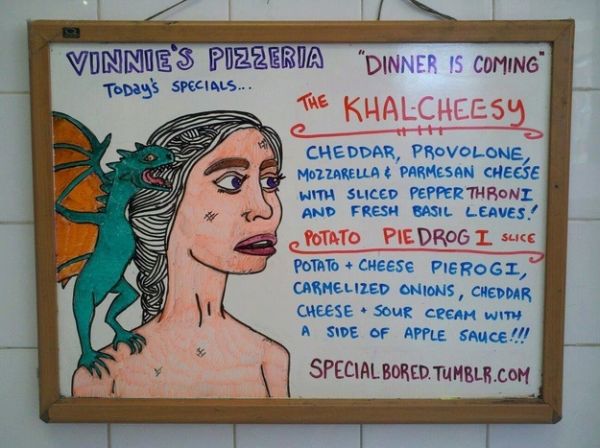 VINNIE'S PIZZERIA
TODAY'S SPECIALS...
"DINNER IS COMING"
THE KHAL-CHEESY
CHEDDAR, PROVOLONE,
MOZZARELLA & PARMESAN CHEESE
WITH SLICED PEPPERTHRONI
AND FRESH BASIL LEAVES!
POTATO PIEDROGI SLICE
POTATO + CHEESE PIEROGI,
CARMELIZED ONIONS, CHEDDAR
CHEESE + SOUR CREAM WITH
A SIDE OF APPLE SAUCE!!!
SPECIALBORED.TUMBLR.COM